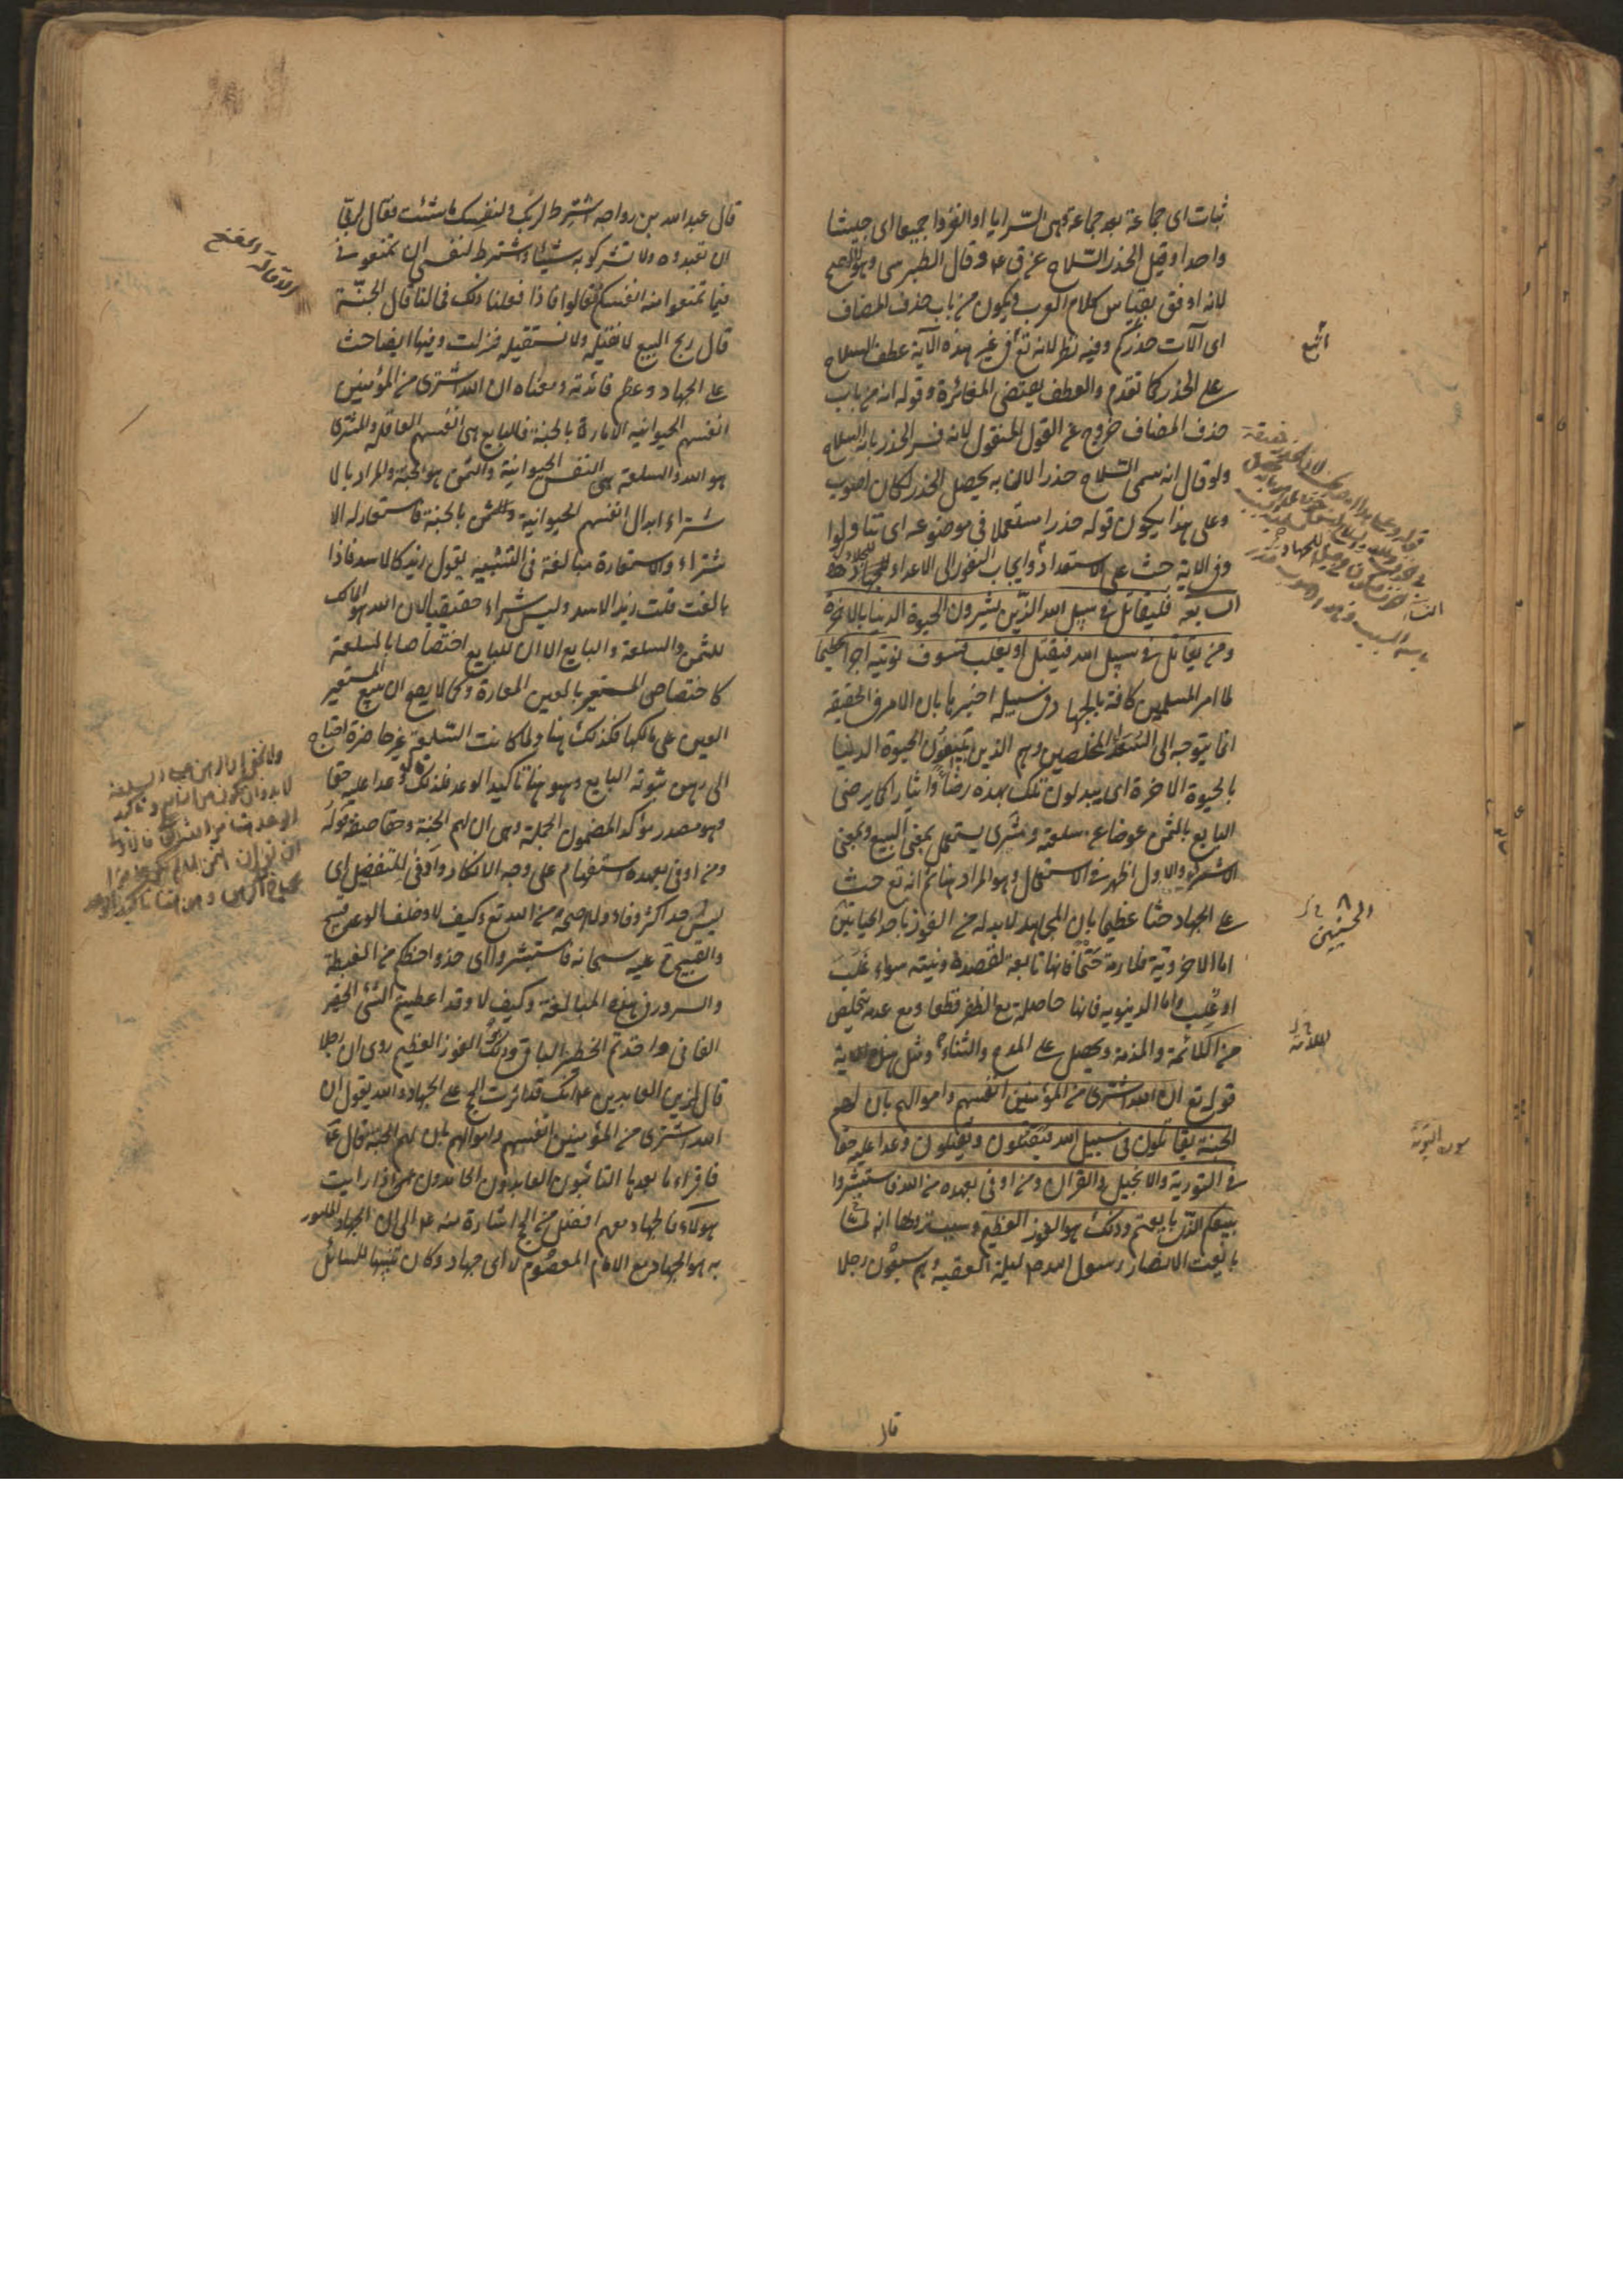 ثبات اى جماعة بعد جماعة وهى السّرايا او انفروا جميعا اى جيشا
واحدا وقيل الحذر السّلاح عن ق ع و قال الطبرسى وهو الاصح
لانه اوفق بقياس كلام العرب ويكون من باب حذف المضاف
اى آلات حذركم وفيه نظر لانه تع فى غير هذه الآية عطف السلاح
على الحذر كما تقدم والعطف يقتضى المغائرة وقوله انه من باب
حذف المضاف خروج عن القول المنقول لانه فسر الحذر بانه السلاح
ولو قال انه سمى السّلاح حذرا لان به يحصل الحذر لكان اصوب
وعلى هذا يكون قوله حذرا مستعملا فى موضوعه اى تناولوا
وفى الاية حث على الاستعداد وايجاب النفور الى الاعداء للجهاد
السابعة فليقاتل فى سبيل الله الذين يشرون الحيوة الدنيا بالاخرة
ومن يقاتل فى سبيل الله فيقتل او يغلب فسوف نؤتيه اجرا عظيما
لما امر المسلمين كافة بالجهاد فى سبيله اخبر بان الامر فى الحقيقة
انما يتوجه الى المخلصين وهم الذين يبيعون الحيوة الدنيا
بالحيوة الاخرة اى يبدلون تلك بهذه رضاً وايثارا كما يرضى
البايع بالثمن عوضا عن سلعته وشرى يستعمل بمعنى البيع وبمعنى
الاشتراء والاول اظهر فى الاستعمال وهو المراد هنا ثم انه تع حث
على الجهاد حثا عظيما بان المجاهد لا بد له من الفوز باحد الحياتين
اما الاخروية فلازمة حتما فانها تابعة لقصده ونيته سواء غلب
او غُلِب واما الدنيويه فانها حاصلة مع الظفر قطعا ومع عدمه يتخلص
من اللائمة والمذمة ويحصل على المدح والثناء ومثل هذه الاية
قوله تع ان الله اشترى من المؤمنين انفسهم واموالهم بان لهم
الجنة يقاتلون فى سبيل الله فيقتلون ويقتلون وعدا عليه حقا
فى التورية والانجيل والقران ومن اوفى بعهده من الله فاستبشروا
ببيعكم الذى بايعتم به وذلك هو الفوز العظيم وسبب نزولها انه لما
بايعت الانصار رسول الله ص ليلة العقبة وهم سبعون رجلا
الحسنيين
للآية
سورة التوبة
قال
قال عبد الله بن رواحه اشترط لربك ولنفسك ما شئت فقال لربى
ان تعبدوه ولا تشركوا به شيئا واشترط لنفسى ان تمنعونى
مما تمنعوا منه انفسكم فقالوا فاذا فعلنا ذلك فما لنا قال الجنّة
قال ربح البيع لا نقيل ولا نستقيل فنزلت وفيها ايضا حث
على الجهاد وعظم فائدته ومعناه ان الله اشترى من المؤمنين
انفسهم الحيوانيه الامارة بالجنة فالبايع هى انفسهم العاقلة والمشترى
هو الله والسلعة هى النفس الحيوانية والثمن هو الجنة والمراد بالا
شتراء ابدال انفسهم الحيوانية بالجنة فاستعار له الا
شتراء والاستعارة مبالغة فى التشبيه يقول زيد كالاسد فاذا
بالغت قلت زيد الاسد وليس شراء حقيقيا لان الله هو المالك
للثمن والسلعة والبايع الا ان للبايع اختصاصا بالسلعة
كاختصاص المستعير بالعين المعارة وكما لا يصح ان يبيع المستعير
العين على مالكها فكذلك هنا ولما كانت السّلعة غير حاضرة احتاج
الى رهن يثبوته البايع وهو هنا تاكيد الوعد فلذلك وعدا عليه حقا
وهو مصدر مؤكد لمضمون الجملة وهى ان لهم الجنة وحقا صفة قوله
ومن اوفى بعهده استفهام على وجه الانكار واوفى للتفضيل اى
ليس احد اكثر وفاء ولا صحة من الله تع وكيف لا وخلف الوعد قبيح
والقبيح ع عليه سبحانه فاستبشروا اى خذوا حظكم من الغبطة
والسرور فى هذه المبايعة وكيف لا وقد اعطيتم الشئ الحقير
الفانى واخذتم الخطير الباقى وذلك هو الفوز العظيم روى ان رجلا
قال لزين العابدين ع انك قد اثرت الحج على الجهاد والله يقول ان
الله اشترى من المؤمنين انفسهم واموالهم بان لهم الجنة فقال ع
فاقراء ما بعدها التائبون العابدون الحامدون ثم اذا رايت
هولاء فالجهاد معهم افضل من الحج اشارة منه ع الى ان الجهاد المأمور
به هو الجهاد مع الامام المعصوم لا اى جهاد وكان تنبيها للسائل